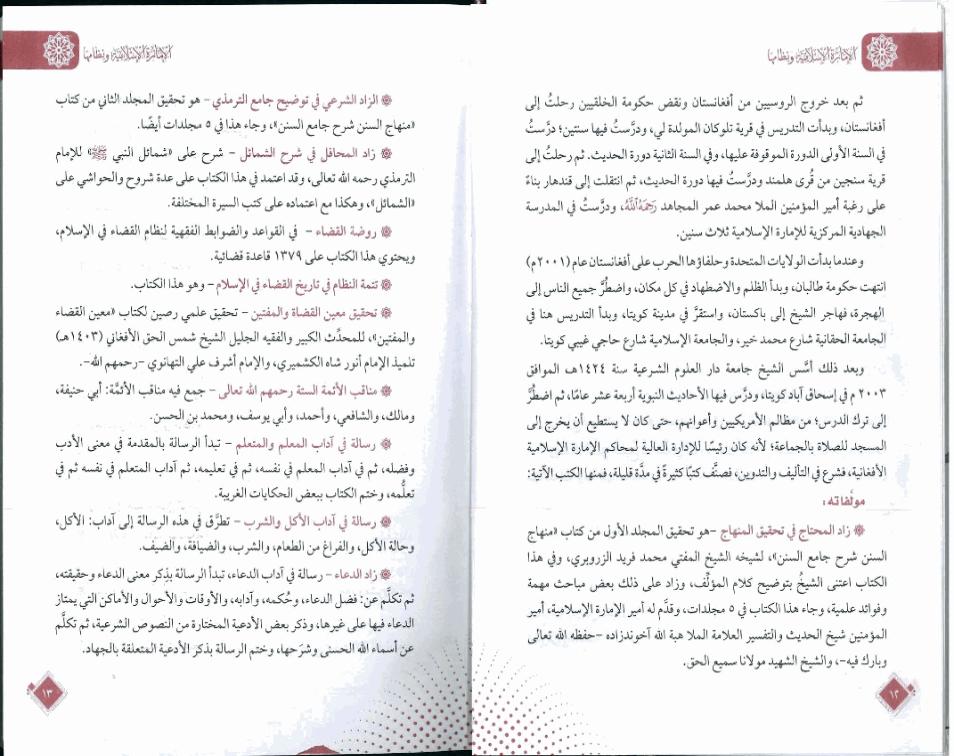 الإمارة الإسلامية ونظامها
ثم بعد خروج الروسيين من أفغانستان ونقض حكومة الخلقيين رحلتُ إلى
أفغانستان، وبدأت التدريس في قرية تلوكان المولدة لي، ودرَّست فيها سنتين؛ درَّستُ
في السنة الأولى الدورة الموقوفة عليها، وفي السنة الثانية دورة الحديث. ثم رحلتُ إلى
قرية سنجين من قُرى هلمند ودرَّستُ فيها دورة الحديث، ثم انتقلت إلى قندهار بناءً
على رغبة أمير المؤمنين الملا محمد عمر المجاهد رَحِمَهُ ٱللَّهُ، ودرَّستُ في المدرسة
الجهادية المركزية للإمارة الإسلامية ثلاث سنين.
وعندما بدأت الولايات المتحدة وحلفاؤها الحرب على أفغانستان عام (٢٠٠١م)
انتهت حكومة طالبان، وبدأ الظلم والاضطهاد في كل مكان، واضطُرَّ جميع الناس إلى
الهجرة، فهاجر الشيخ إلى باكستان، واستقرَّ في مدينة كويتا، وبدأ التدريس هنا في
الجامعة الحقانية شارع محمد خير، والجامعة الإسلامية شارع حاجي غيبي كويتا.
وبعد ذلك أسَّس الشيخ جامعة دار العلوم الشرعية سنة ١٤٢٤هـ الموافق
٢٠٠٣م في إسحاق آباد كويتا، ودرَّس فيها الأحاديث النبوية أربعة عشر عامًا، ثم اضطُرَّ
إلى ترك الدرس؛ من مظالم الأمريكيين وأعوانهم، حتى كان لا يستطيع أن يخرج إلى
المسجد للصلاة بالجماعة؛ لأنه كان رئيسًا للإدارة العالية لمحاكم الإمارة الإسلامية
الأفغانية، فشرع في التأليف والتدوين، فصنَّف كتبًا كثيرةً في مدَّة قليلة، فمنها الكتب الآتية:
مولَّفاته:
زاد المحتاج في تحقيق المنهاج -هو تحقيق المجلد الأول من كتاب «منهاج
السنن شرح جامع السنن»، لشيخه الشيخ المفتي محمد فريد الزروبري، وفي هذا
الكتاب اعتنى الشيخُ بتوضيح كلام المؤلِّف، وزاد على ذلك بعض مباحث مهمة
وفوائد علمية، وجاء هذا الكتاب في ٥ مجلدات، وقدَّم له أمير الإمارة الإسلامية، أمير
المؤمنين شيخ الحديث والتفسير العلامة الملا هبة الله آخوندزاده -حفظه الله تعالى
وبارك فيه-، والشيخ الشهيد مولانا سميع الحق.
١٢
الإمارة الإسلامية ونظامها
الزاد الشرعي في توضيح جامع الترمذي - هو تحقيق المجلد الثاني من كتاب
«منهاج السنن شرح جامع السنن»، وجاء هذا في ٥ مجلدات أيضًا.
زاد المحافل في شرح الشمائل - شرح على «شمائل النبي ﷺ» للإمام
الترمذي رحمه الله تعالى، وقد اعتمد في هذا الكتاب على عدة شروح والحواشي على
«الشمائل»، وهكذا مع اعتماده على كتب السيرة المختلفة.
روضة القضاء - في القواعد والضوابط الفقهية لنظام القضاء في الإسلام،
ويحتوي هذا الكتاب على ١٣٧٩ قاعدة قضائية.
تتمة النظام في تاريخ القضاء في الإسلام - وهو هذا الكتاب.
تحقيق معين القضاة والمفتين - تحقيق علمي رصين لكتاب «معين القضاء
والمفتين»، للمحدِّث الكبير والفقيه الجليل الشيخ شمس الحق الأفغاني (١٤٠٣هـ)
تلميذ الإمام أنور شاه الكشميري، والإمام أشرف علي التهانوي -رحمهم الله-.
مناقب الأئمة الستة رحمهم الله تعالى - جمع فيه مناقب الأئمَّة: أبي حنيفة،
ومالك، والشافعي، وأحمد، وأبي يوسف، ومحمد بن الحسن.
رسالة في آداب المعلم والمتعلم - تبدأ الرسالة بالمقدمة في معنى الأدب
وفضله، ثم في آداب المعلم في نفسه، ثم في تعليمه، ثم آداب المتعلم في نفسه ثم في
تعلُّمه، وختم الكتاب ببعض الحكايات الغريبة.
رسالة في آداب الأكل والشرب - تطرَّق في هذه الرسالة إلى آداب: الأكل،
وحالة الأكل، والفراغ من الطعام، والشرب، والضيافة، والضيف.
زاد الدعاء - رسالة في آداب الدعاء، تبدأ الرسالة بذِكر معنى الدعاء وحقيقته،
ثم تكلَّم عن: فضل الدعاء، وحُكمه، وآدابه، والأوقات والأحوال والأماكن التي يمتاز
الدعاء فيها على غيرها، وذكر بعض الأدعية المختارة من النصوص الشرعية، ثم تكلَّم
عن أسماء الله الحسنى وشرَحها، وختم الرسالة بذكر الأدعية المتعلقة بالجهاد.
١٣